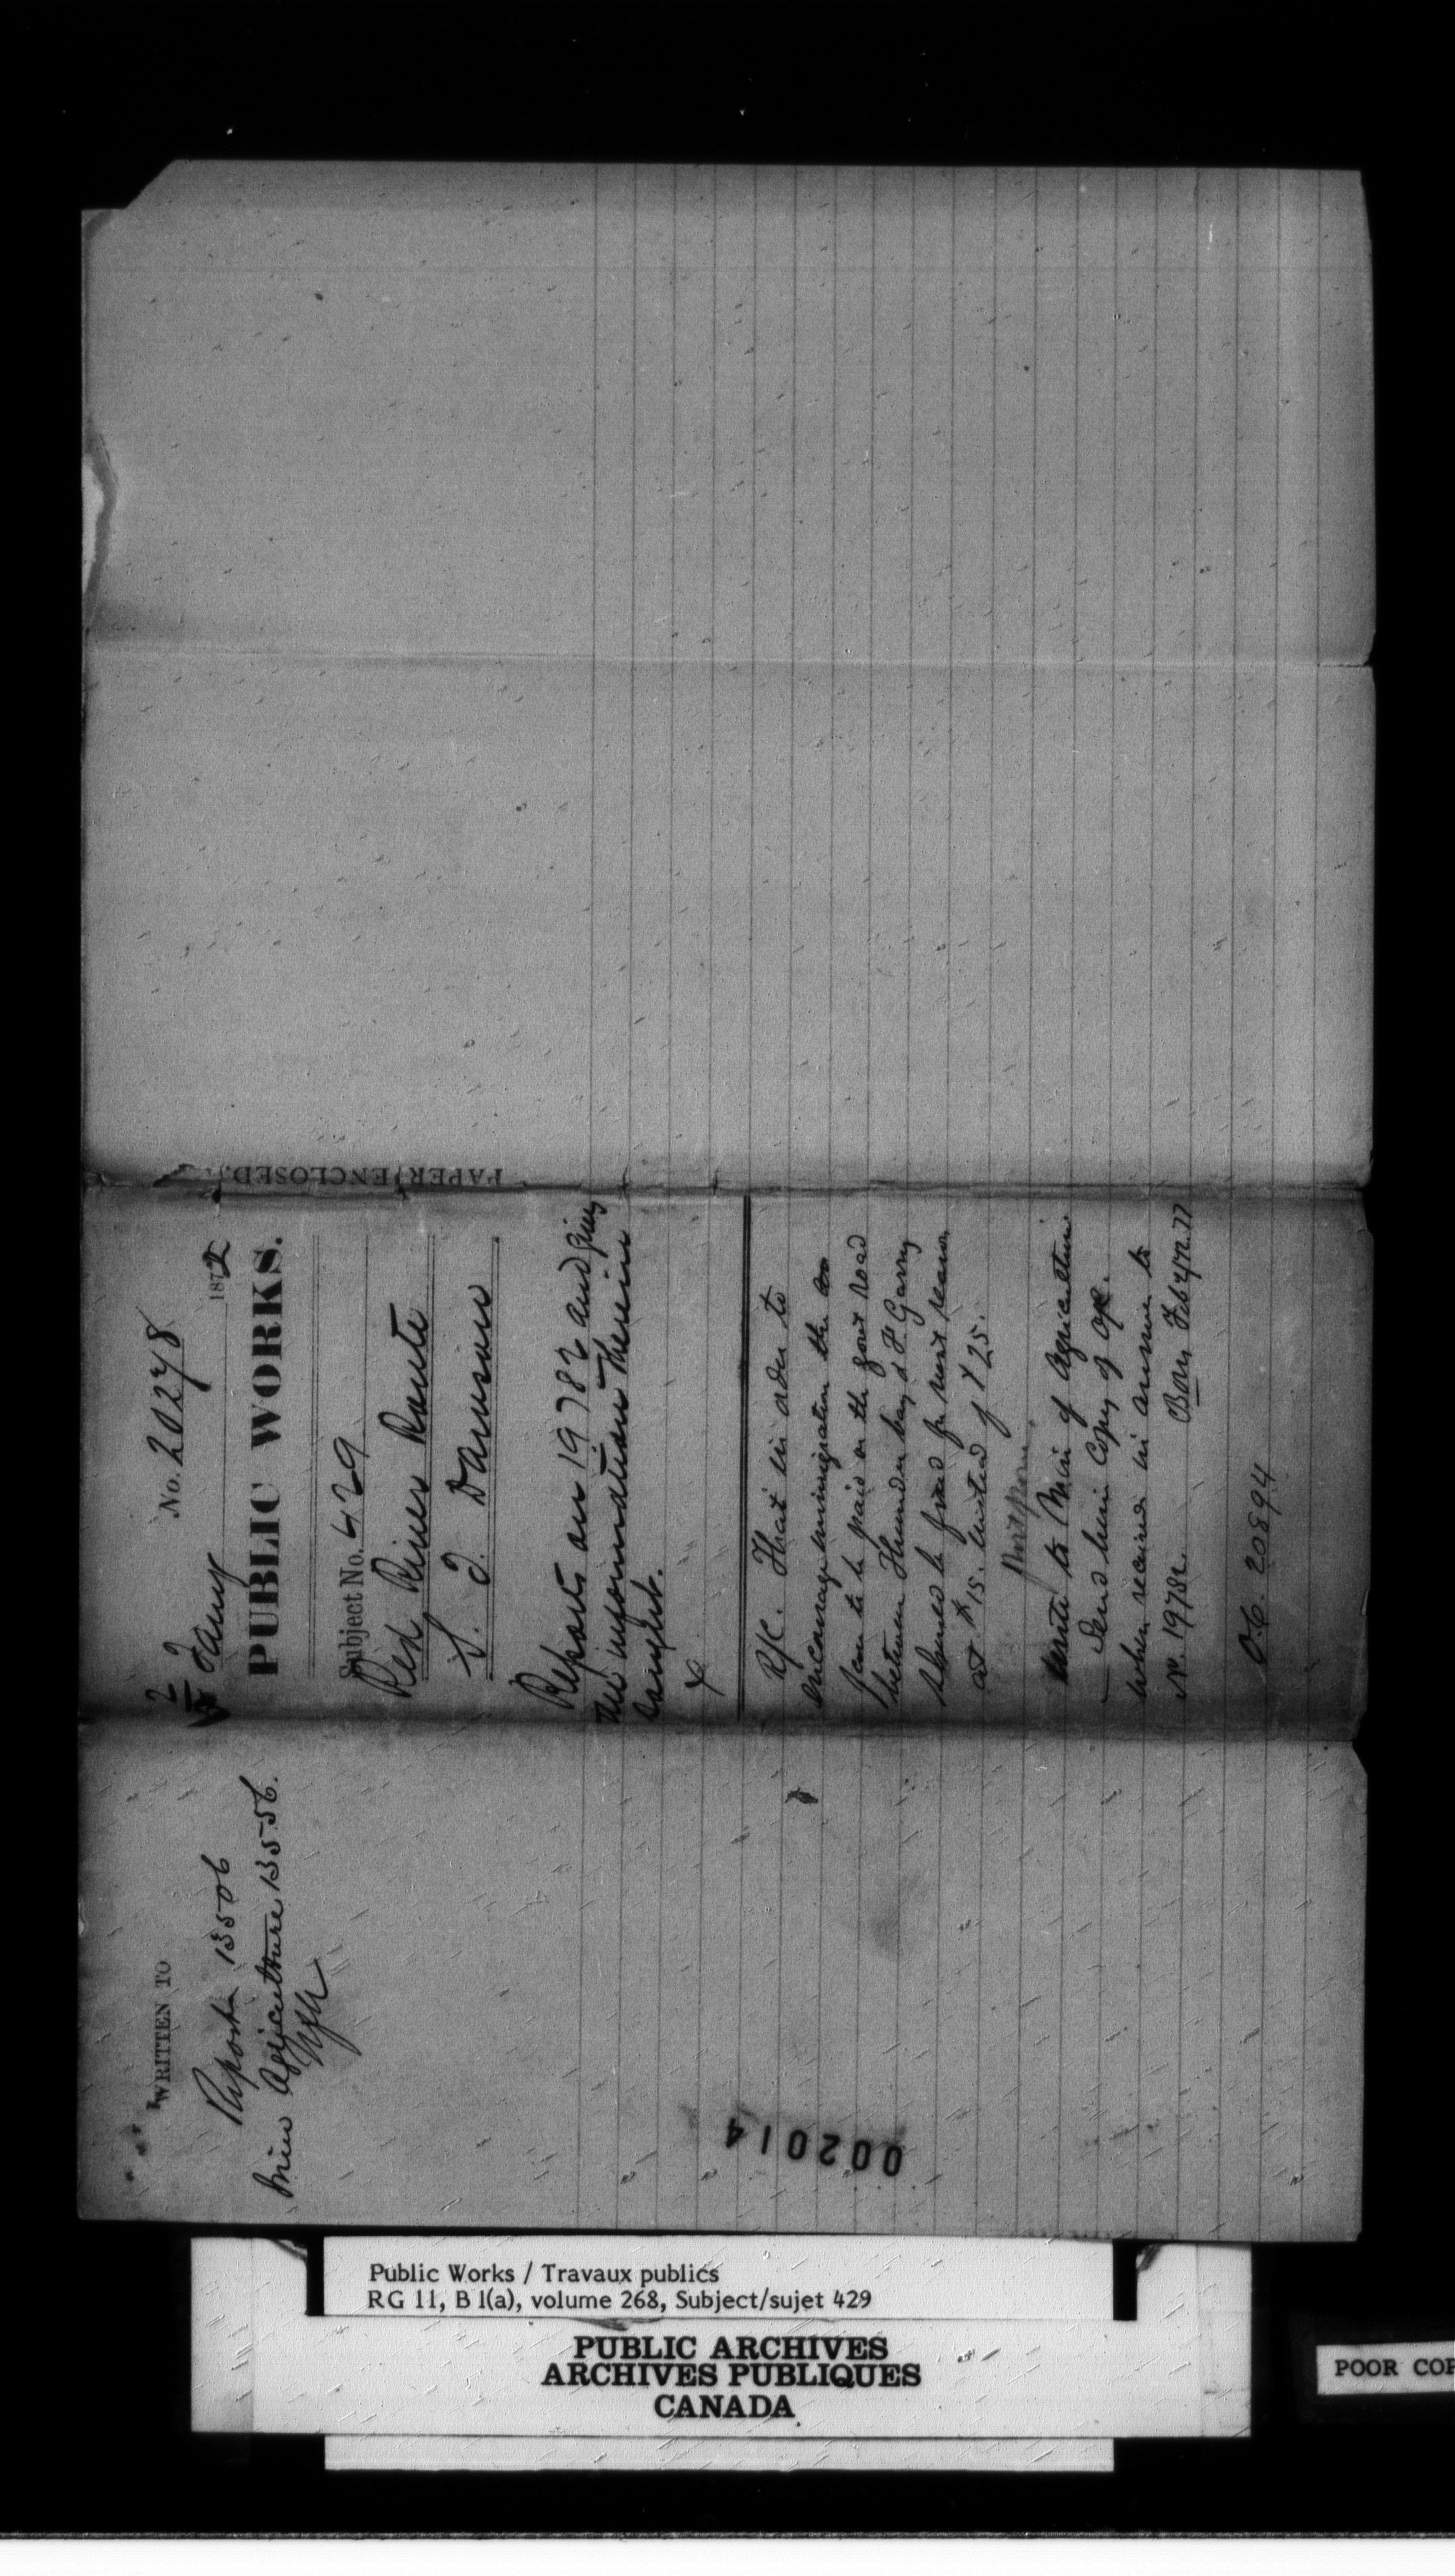 No. 20278
2 Jany 1872
PUBLIC WORKS.
Subject No. 429
Red River Route
S. J. Dawson
Reports on 19782 and gives
the information therein
sought.
R/C. That in order to
encourage immigration the
fare to be paid on the govt road
between Thunder bay & Ft Garry
should be fixed for next season
at $15. instead of $25.
Write to Min of Agriculture
Send him copy of O/C.
when received in answer to
No. 19782. Feby 72
O.C. 20894
PAPER ENCLOSED,
WRITTEN TO
Reports 13506
Min Agriculture 13556.
002014
Public Works / Travaux publics
RG 11, B 1(a), volume 268, Subject/sujet 429
PUBLIC ARCHIVES
ARCHIVES PUBLIQUES
CANADA
POOR COP